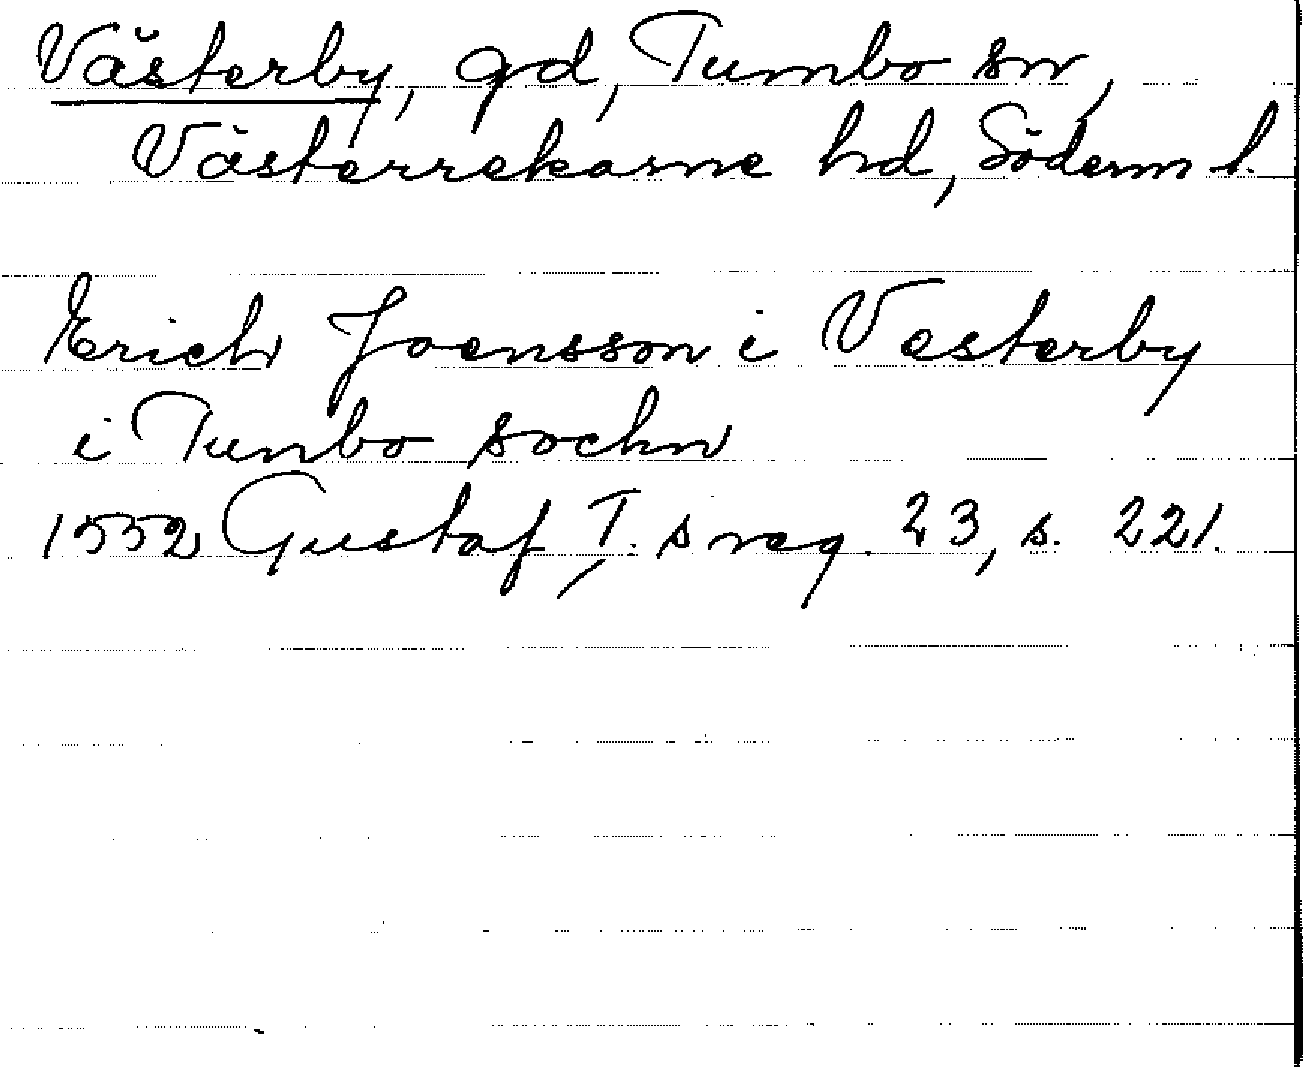 Västerby, gd, Tumbo sn,
Västerrekarne hd, Söderm l.
Erich Joensson i Vesterby
i Tunbo sochn
1552 Gustaf I. s reg. 23, s. 221.